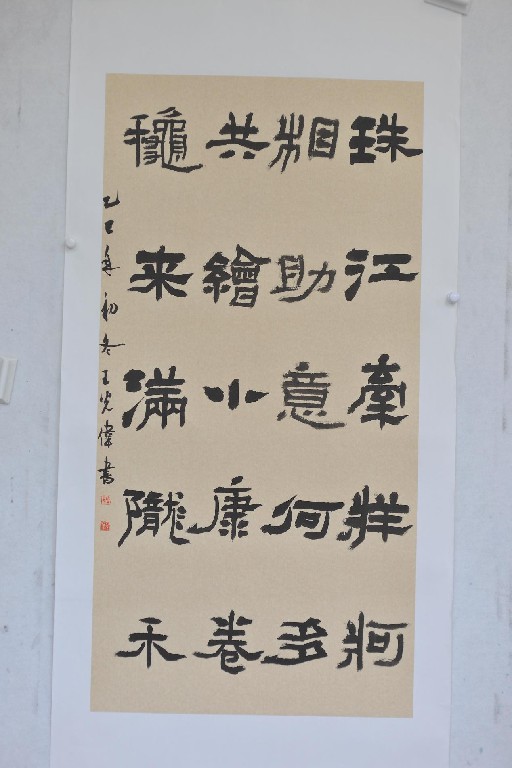 珠江牽牂牁
相助意何多
共繪小康卷
穐来滿隴禾
乙巳年初冬王光偉書